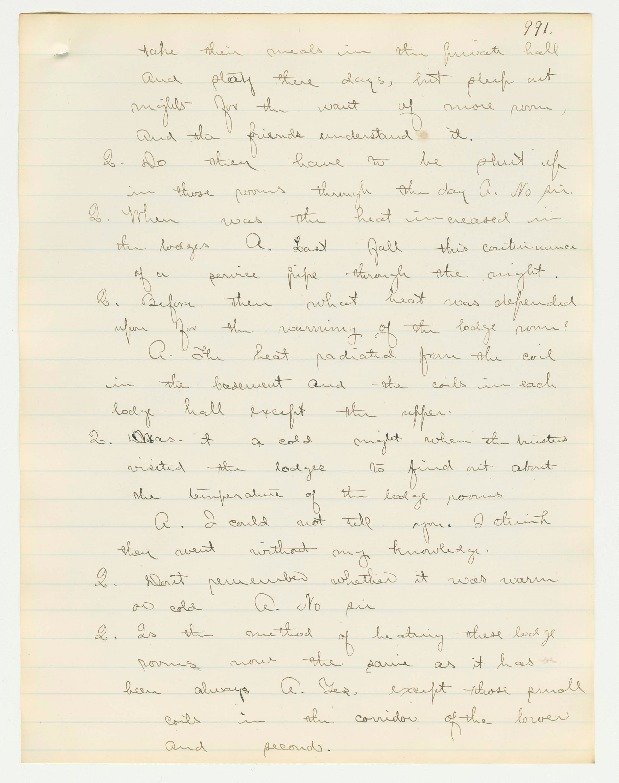 991.
take their meals in the private hall
and stay there days, but sleep out
nights for the want of more room,
and the friends understand it.
Q. Do they have to be shut up
in those rooms through the day A. No sir.
Q. When was the heat increased in
the lodges A. Last fall this continuance
of a service pipe through the night.
Q. Before then what heat was depended
upon for the warming of the lodge rooms?
A. The heat radiated from the coil
in the basement and the coils in each
lodge hall except the upper.
Q. Was it a cold night when the trustees
visited the lodges to find out about
the temperature of the lodge rooms
A. I could not tell you. I think
they went without my knowledge.
Q. Don't remember whether it was warm
or cold A. No sir
Q. Is the method of heating these lodge
rooms now the same as it has
been always A. Yes. except those small
coils in the corridor of the lower
and second.